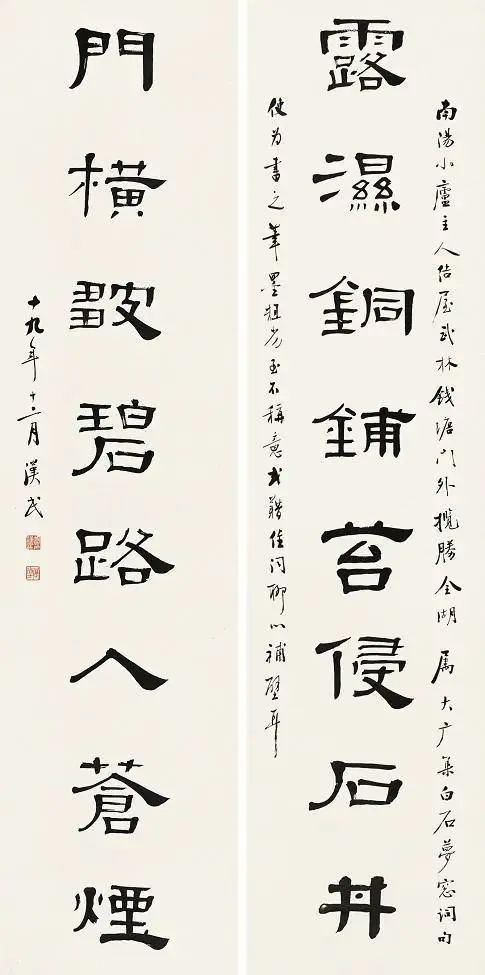 露濕銅鋪苔侵石井
南陽小廬主人结屋武林錢塘門外攬勝全湖 属大厂集白石夢窓詞句
使为書之筆墨粗劣至不稱意佳詞聊以補壁耳
門橫皺碧路入蒼煙
十九年十二月 漢民